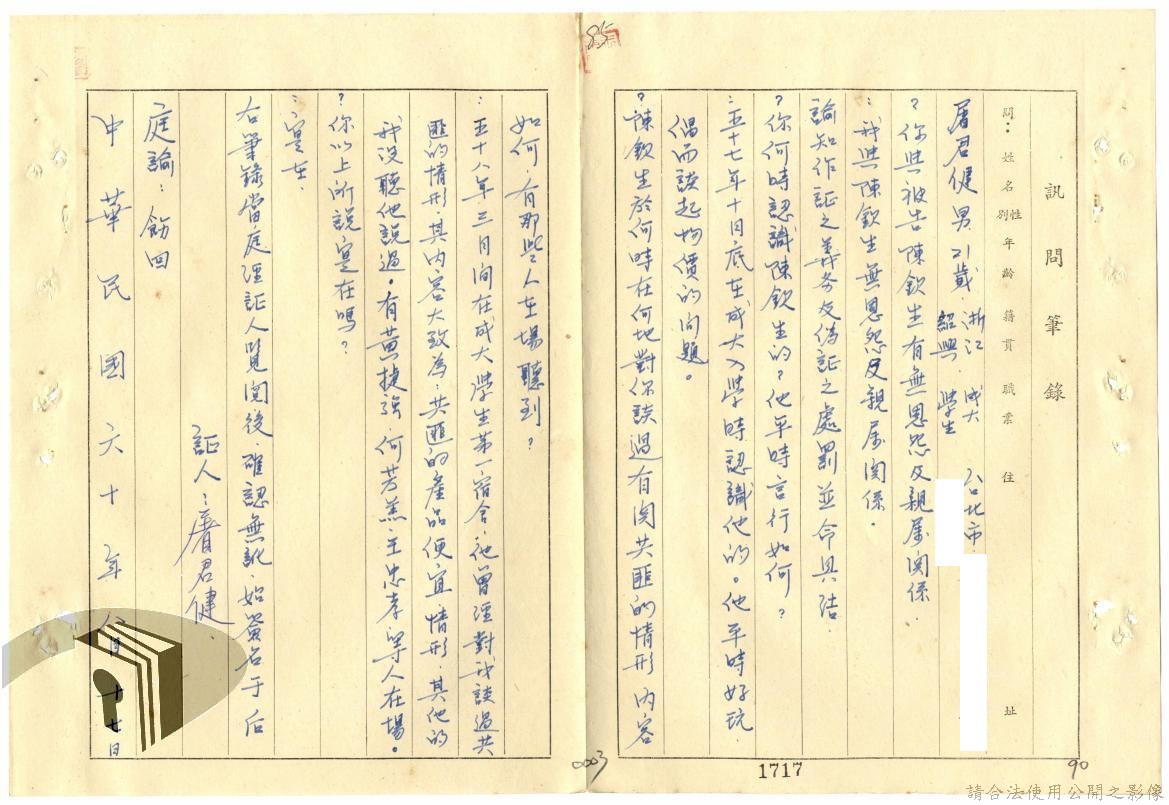 訊問筆錄
問：姓名 性別 年齡 籍貫 職業 住址
屠君健 男 21歲 浙江紹興 成大學生 台北市
？你與被告陳欽生有無恩怨及親屬関係
：我與陳欽生無恩怨及親屬関係．
諭知作証之義务及偽証之處罰並命具结．
？你何時認識陳欽生的？他平時言行如何？
：五十七年十月底在成大入學時認識他的。他平時好玩．
偶而談起物價的问題。
？陳欽生於何時在何地對你談過有関共匪的情形 内容
如何．有那些人在場聽到？
：五十八年三月间在成大學生第一宿舍．他曾經對我談過共
匪的情形．其内容大致為．共匪的產品便宜情形．其他的
我没聽他說過。有黃捷强．何芳羔．王忠孝等人在場。
？你以上所說寔在嗎？
：寔在．
右筆錄當庭經証人覧閲後．確認無訛．始簽名于后
証人：屠君健．
庭諭：飭回
中華民國六十年八月十七日
85
0003
1717
90
請合法使用公開之影像